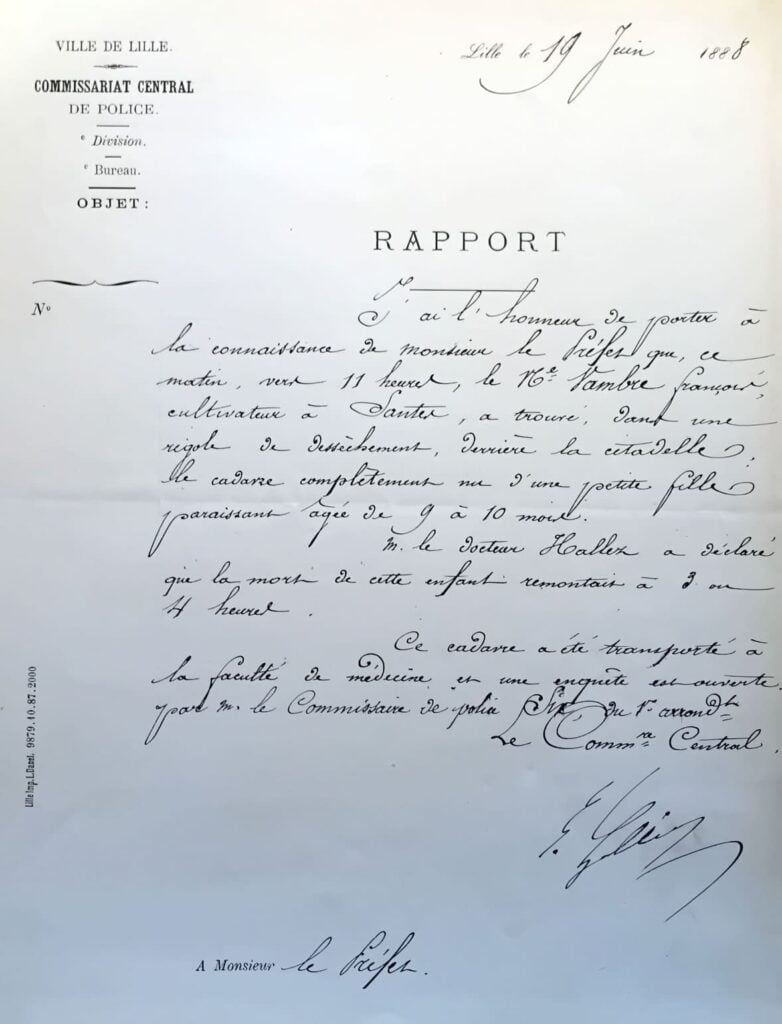 VILLE DE LILLE.
COMMISSARIAT CENTRAL
DE POLICE.
e Division.
e Bureau.
OBJET :
Nº
Lille le 19 Juin 1888
RAPPORT
J'ai l'honneur de porter à
la connaissance de monsieur le Préfet que, ce
matin, vers 11 heures, le Né Vambre françois,
cultivateur à Santes, a trouvé, dans une
rigole de dessèchement, derrière la citadelle,
le cadavre complètement nu d'une petite fille
paraissant âgée de 9 à 10 mois.
M. le docteur Hallez a déclaré
que la mort de cette enfant remontait à 3 ou
4 heures.
Ce cadavre a été transporté à
la faculté de médecine et une enquête est ouverte
par M. le Commissaire de police du Vº arrondt
Le Commre Central.
A Monsieur le Préfet.
Lille Imp. L. Danel. 9879.10.87.2000